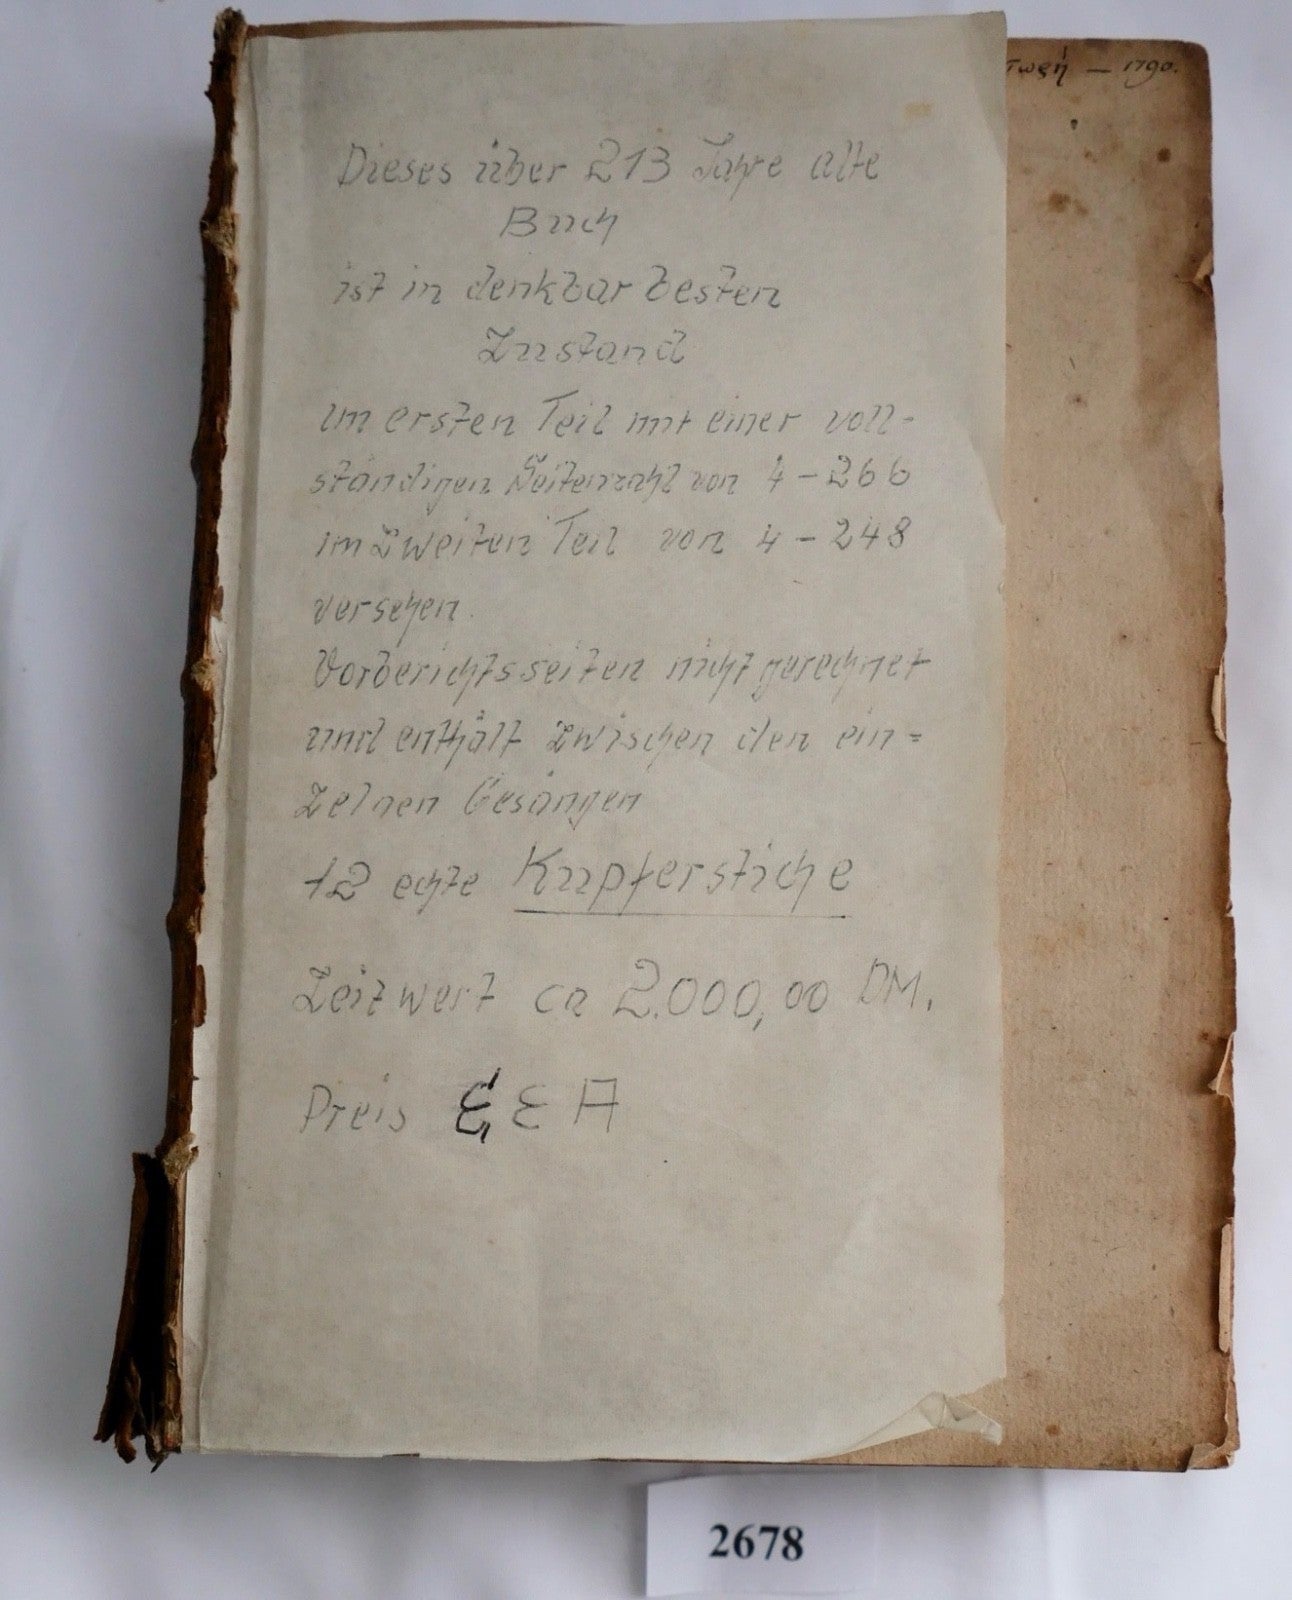 1790.
Dieses über 213 Jahre alte
Buch
ist in denkbar besten
Zustand
im ersten Teil mit einer voll-
ständigen Seitenzahl von 4 - 266
im zweiten Teil von 4 - 248
versehen.
Vorberichtsseiten nicht gerechnet
und enthält zwischen den ein=
zelnen Gesängen
12 echte Kupferstiche
Zeitwert ca 2.000,00 DM.
Preis
2678